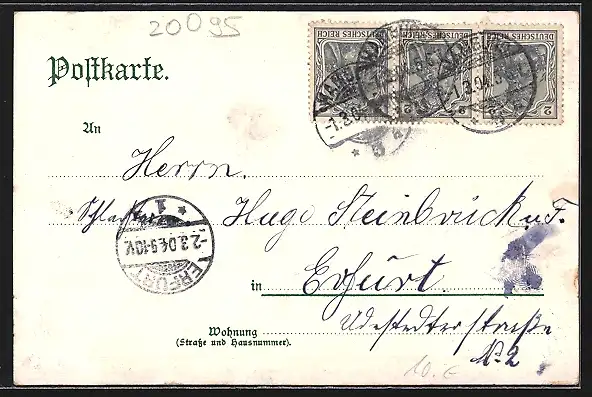 20095
DEUTSCHES REICH DEUTSCHES REICH DEUTSCHES REICH
2 2 2
Postkarte.
-1.3.04.
An
Herrn.
Hugo Steinbrück u. F.
1
-2.3.04.9-10V.
ERFURT
in Erfurt.
Wohnung
(Straße und Hausnummer).
Udestedterstraße
No. 2
10.€